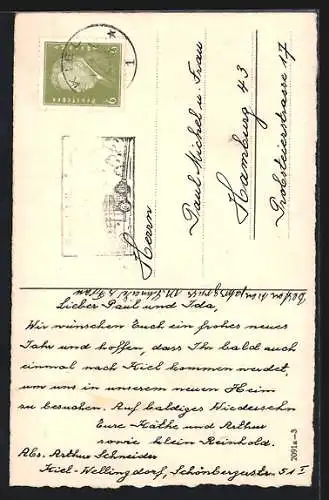 KIEL
1
6
6
Deutsches
Herrn
Paul Michel u. Frau
Hamburg 43
Probsteierstrasse 17
Lieber Paul und Ida,
Wir wünschen Euch ein frohes neues
Jahr und hoffen, dass Ihr bald auch
einmal nach Kiel kommen werdet,
um uns in unserem neuen Heim
zu besuchen. Auf baldiges Wiedersehn
Eure Käthe und Arthur
sowie klein Reinhold.
Abs. Arthur Schneider
Kiel-Wellingdorf, Schönbergerstr. 51 I
2091a-3